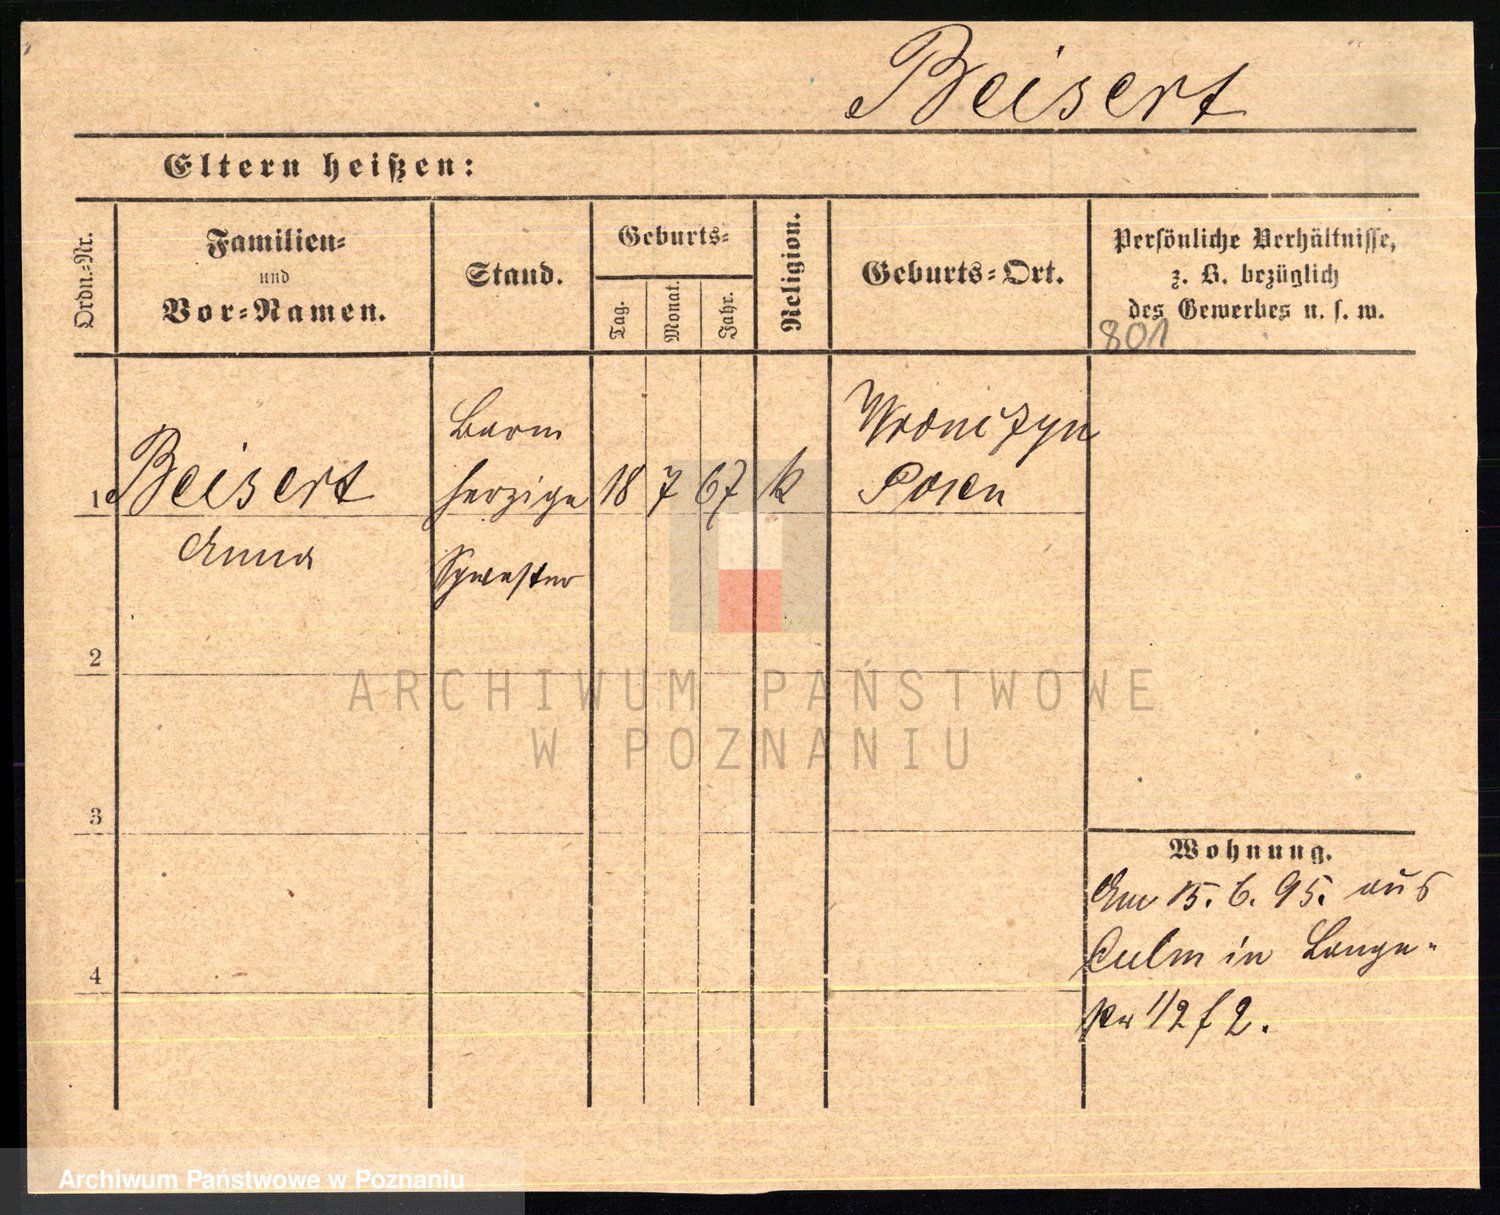 Beisert
Eltern heißen:
Ordn.-Nr.
Familien-
und
Vor-Namen.
Stand.
Geburts-
Tag.
Monat.
Jahr.
Religion.
Geburts-Ort.
Persönliche Verhältnisse,
z. B. bezüglich
des Gewerbes u. s. w.
801
1
Beisert
Anna
Barm
herzige
Schwester
18 7 67 k
Wronczyn
Posen
2
3
4
Wohnung.
Am 15. 6. 95. aus
Culm in Lange-
1/2
2.
ARCHIWUM PAŃSTWOWE
W POZNANIU
Archiwum Państwowe w Poznaniu